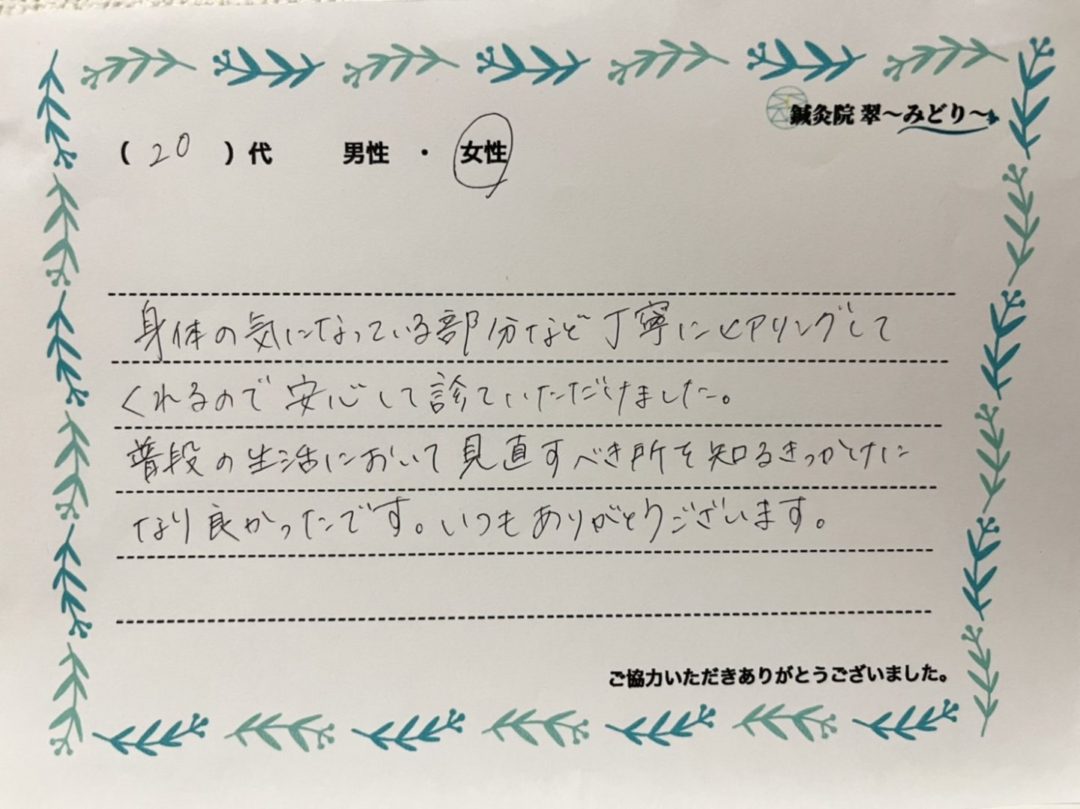 鍼灸院 翠〜みどり〜
( 20 )代 男性 ・ 女性
身体の気になっている部分など丁寧にヒアリングして
くれるので安心して診ていただけました。
普段の生活において見直すべき所を知るきっかけに
なり良かったです。いつもありがとうございます。
ご協力いただきありがとうございました。